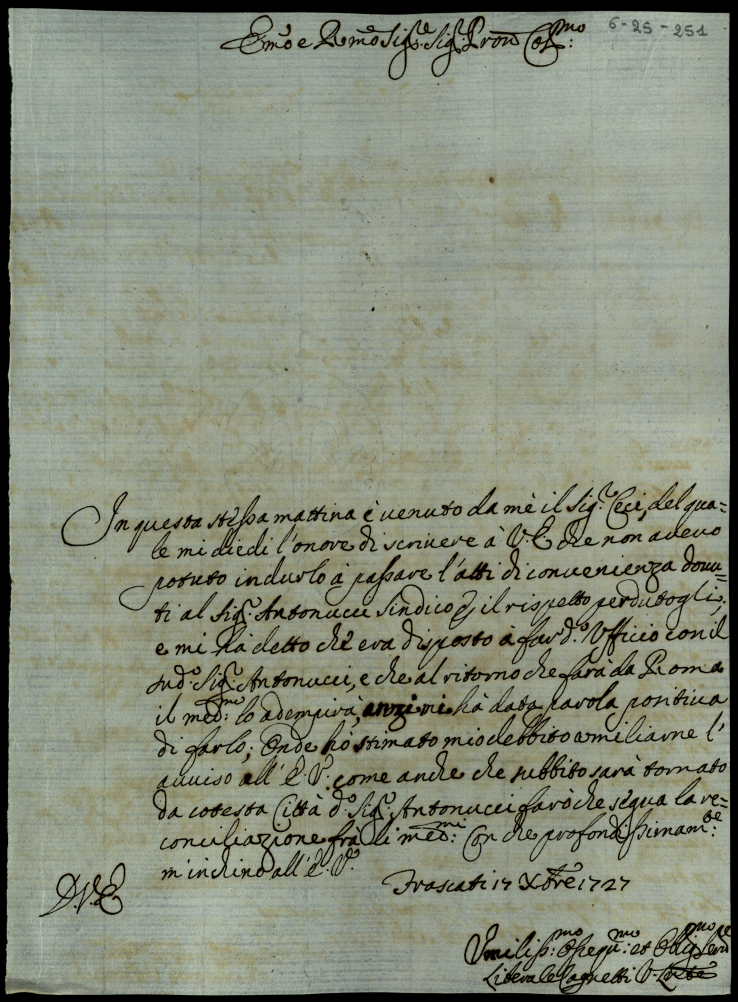 6-25-251
Emo e Rmo Sig.r Sig.r Pron Col.mo:
In questa stessa mattina è venuto da mè il Sig.r Ceci, del qua=
le mi diedi l'onore di scrivere à V.E. che non avevo
potuto indurlo à passare l'atti di convenienza dovu=
ti al Sig.r Antonucci Sindico p il rispetto perdutogli;
e mi hà detto che era disposto à far d.o Ufficio con il
sud.o Sig.r Antonucci, e che al ritorno che farà da Roma
il med.mo: lo adempirà, anzi mi hà data parola positiva
di farlo; Onde hò stimato mio debbito umiliarne l'
avviso all'E.V. come anche che subbito sarà tornato
da cotesta Città d.o Sig.r Antonucci farò che segua la re=
conciliazione frà li med.mi: Con che profondissimam.te:
m'inchino all'E.V.
D.V.E.
Frascati 17 Xbre 1727
Umiliss.mo Osseq.mo: et Oblig.mo Serv.re
Liberale